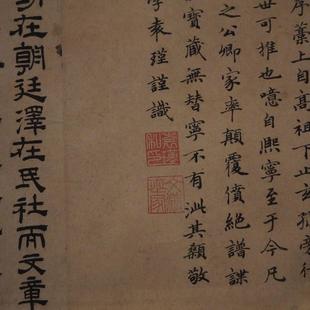 序藁上自高祖下止玄孫旁行
世可推也噫自熙寧至于今凡
之公卿家率顛覆僨絕譜諜
寶藏無替寧不有泚其顙敬
袁瑾謹識
在朝廷澤在民社而文章